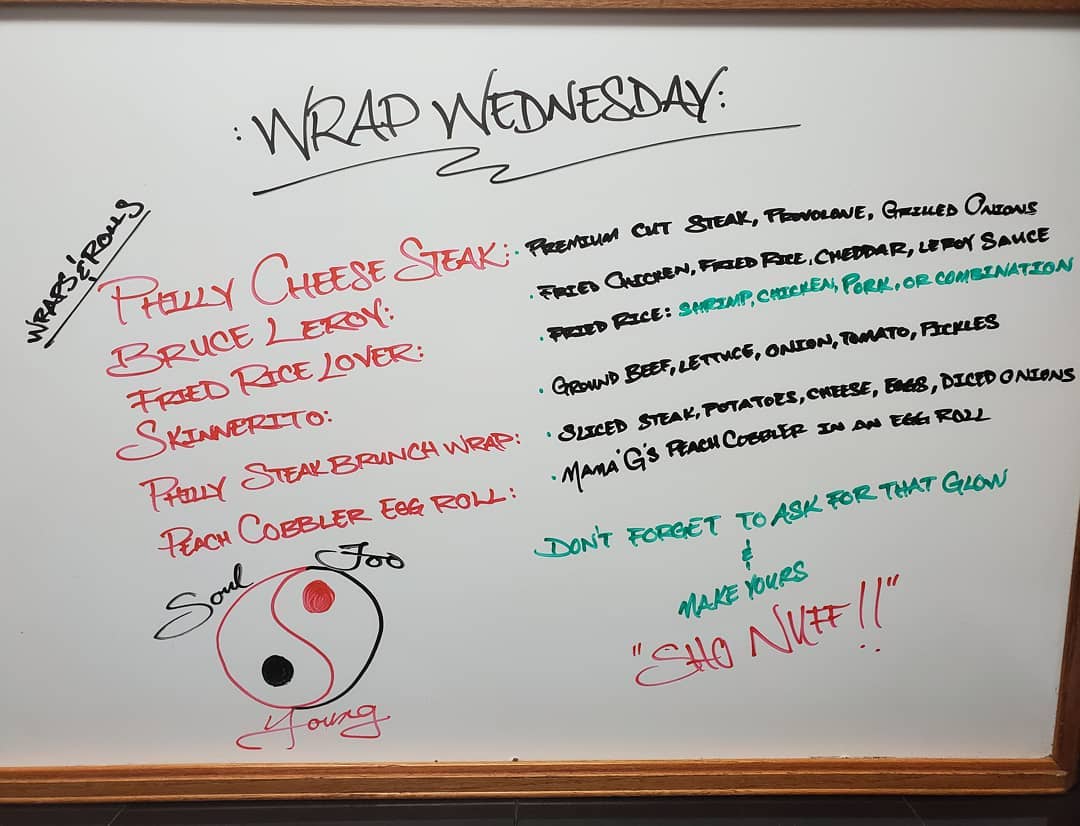 : WRAP WEDNESDAY:
WRAPS' & ROLLS
PHILLY CHEESE STEAK: · PREMIUM CUT STEAK, PROVOLONE, GRILLED ONIONS
BRUCE LEROY: · FRIED CHICKEN, FRIED RICE, CHEDDAR, LEROY SAUCE
FRIED RICE LOVER: · FRIED RICE: SHRIMP, CHICKEN, PORK, OR COMBINATION
SKINNERITO: · GROUND BEEF, LETTUCE, ONION, TOMATO, PICKLES
PHILLY STEAK BRUNCH WRAP: · SLICED STEAK, POTATOES, CHEESE, EGGS, DICED ONIONS
PEACH COBBLER EGG ROLL: · MAMA'G'S PEACH COBBLER IN AN EGG ROLL
DON'T FORGET TO ASK FOR THAT GLOW
&
MAKE YOURS
"SHO NUFF!!"
Soul Foo
Young